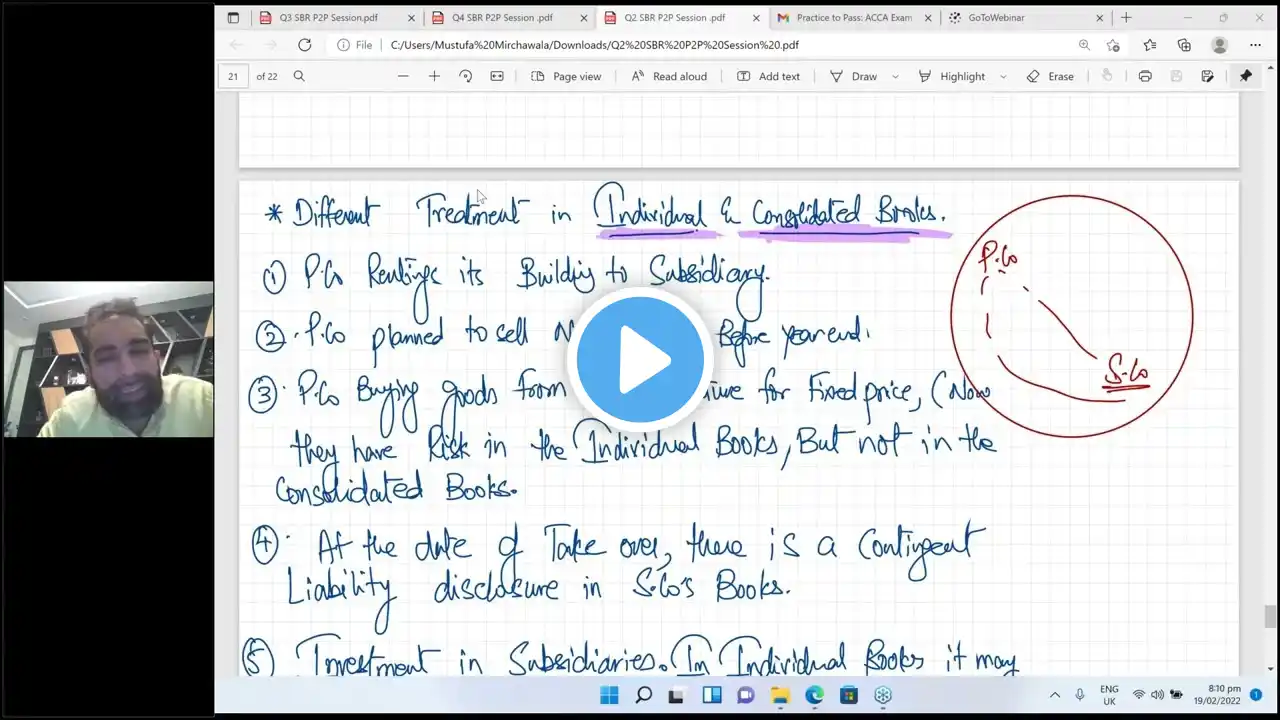 Q3 SBR P2P Session.pdf
Q4 SBR P2P Session .pdf
Q2 SBR P2P Session .pdf
Practice to Pass: ACCA Exam
GoToWebinar
File
C:/Users/Mustufa%20Mirchawala/Downloads/Q2%20SBR%20P2P%20Session%20.pdf
21 of 22
Page view
Read aloud
Add text
Draw
Highlight
Erase
* Different Treatment in Individual & Consolidated Books.
① P.Co Rentings its Building to Subsidiary.
② P.Co planned to sell Before year end.
③ P.Co Buying goods from for Fixed price, (Now
they have Risk in the Individual Books, But not in the
Consolidated Books.
④ At the date of Take over, there is a Contingent
Liability disclosure in S.Co's Books.
⑤ Investment in Subsidiaries. In Individual Books it may
P.Co
S.Co
ENG
UK
8:10 pm
19/02/2022
1